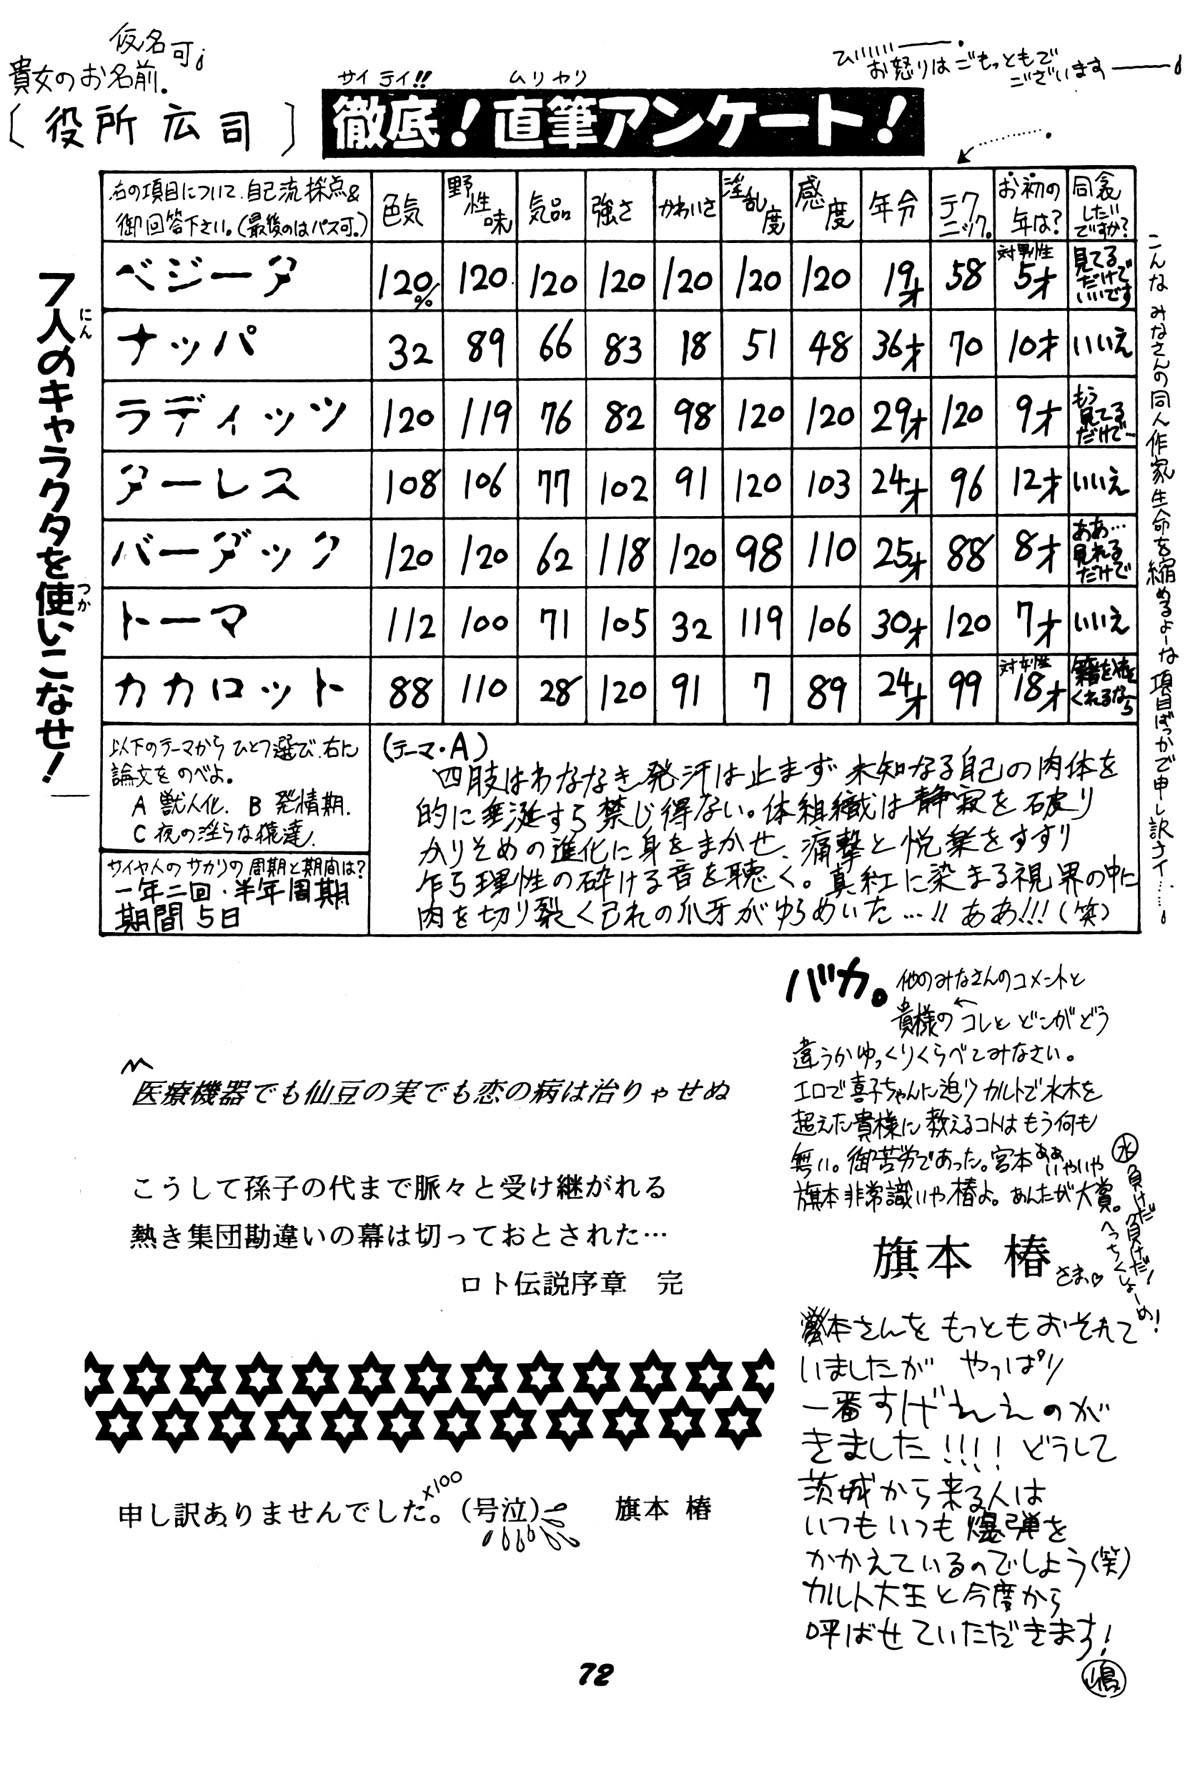 仮名可。
貴女のお名前。
〔役所広司〕
サイテイ!! ムリヤリ
徹底！直筆アンケート！
ひいいい――。
お怒りはごもっともで
ございます――。
7人のキャラクタを使いこなせ！
にん
つか
右の項目について、自己流採点&
御回答下さい。(最後のはパス可。)
色気 野性味 気品 強さ かわいさ 淫乱度 感度 年分 テクニック。 同衾したいですか?
ベジータ 120% 120 120 120 120 120 120 19才 58 見てるだけでいいです
ナッパ 32 89 66 83 18 51 48 36才 70 いいえ
ラディッツ 120 119 76 82 98 120 120 29才 120 もう見てるだけで―
ターレス 108 106 77 102 91 120 103 24才 96 いいえ
バーダック 120 120 62 118 120 98 110 25才 88 ああ…見れるだけで
トーマ 112 100 71 105 32 119 106 30才 120 いいえ
カカロット 88 110 28 120 91 7 89 24才 99 くれるなら
こんなみなさんの同人作家生命を縮めるよーな項目ばっかで申し訳ナイ……。
以下のテーマからひとつ選び、右に
論文をのべよ。
A 獣人化. B 発情期.
C 夜の淫らな猿達.
サイヤ人のサカリの周期と期間は?
一年二回・半年周期
期間5日
(テーマ・A)
四肢はわななき発汗は止まず未知なる自己の肉体を
的に垂涎すら禁じ得ない。体組織は静寂を破り
かりそめの進化に身をまかせ、痛撃と悦楽をすすり
乍ら理性の砕ける音を聴く。真紅に染まる視界の中に
肉を切り裂く己れの爪牙がゆらめいた…!! ああ!!!(笑)
医療機器でも仙豆の実でも恋の病は治りゃせぬ
こうして孫子の代まで脈々と受け継がれる
熱き集団勘違いの幕は切っておとされた…
ロト伝説序章　完
申し訳ありませんでした。(号泣)
×100
旗本 椿
バカ。
他のみなさんのコメントと
貴様の←コレと どこがどう
違うかゆっくりくらべてみなさい。
エロで喜子ちゃんに迫りカルトで水木を
超えた貴様に教えるコトはもう何も
無い。御苦労であった。宮本ああいやいや
旗本非常識いや椿よ。あんたが大賞。
水
負けだ負けだ!
へっちくしょーめ!
旗本 椿 さま♡
本さんをもっともおそれて
いましたが やっぱり
一番すげえええのが
きました!!!! どうして
茨城から来る人は
いつもいつも爆弾を
かかえているのでしょう(笑)
カルト大王と今度から
呼ばせていただきます!
72